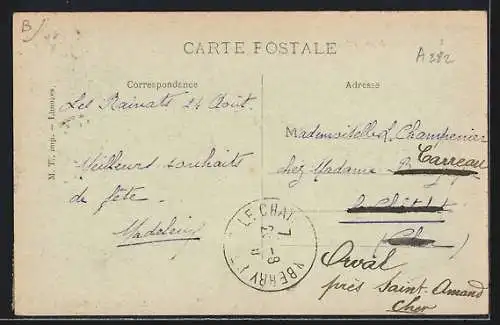 B/
CARTE POSTALE
A282
Correspondance
Adresse
M. T., imp. — Limoges.
Les Rainats 24 Août.
Meilleurs souhaits
de fête.
Madeleine
Mademoiselle L. Champenier
chez Madame Carreau
Orval
près Saint-Amand
Cher
LE CHAT